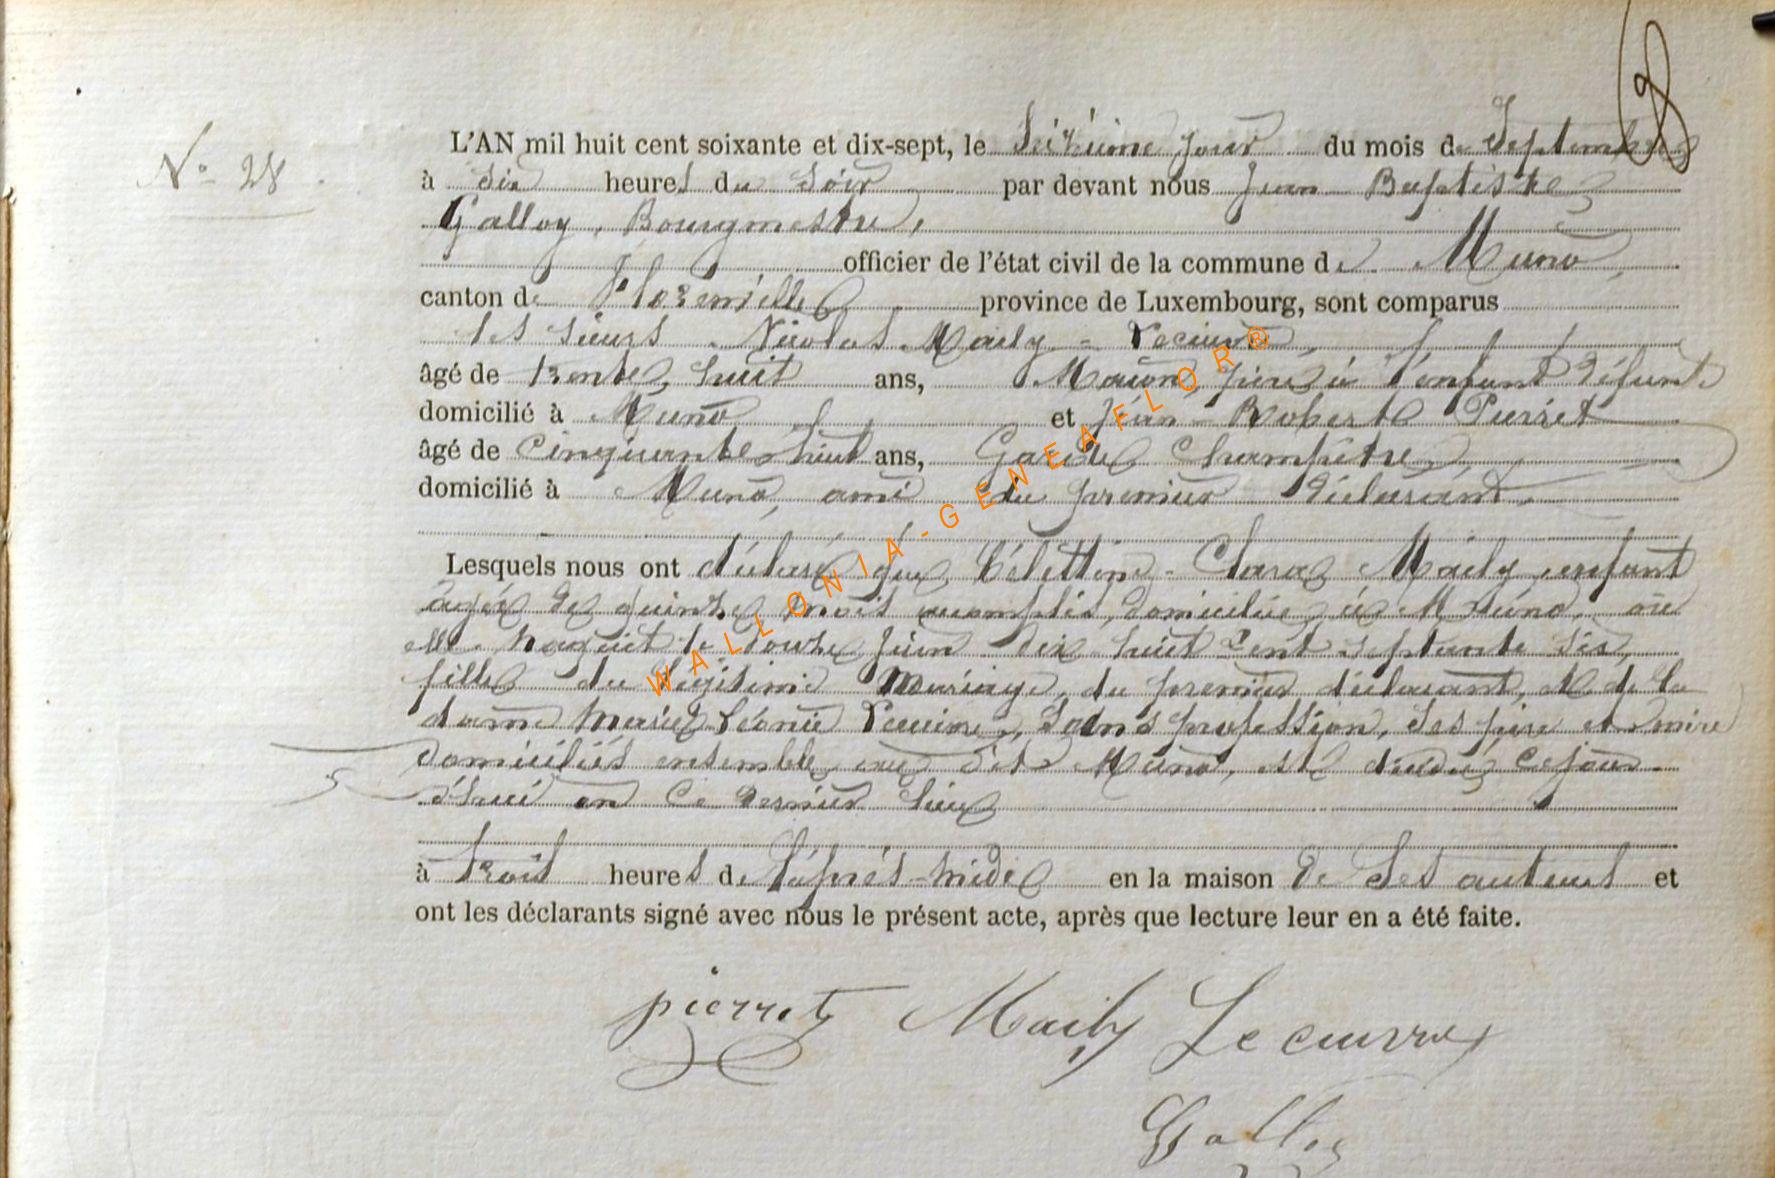 N° 28
L'AN mil huit cent soixante et dix-sept, le Seizième jour du mois de Septembre
à six heures du soir par devant nous Jean Baptiste
Galloy, Bourgmestre,
officier de l'état civil de la commune de Muno,
canton de Florenville province de Luxembourg, sont comparus
les sieurs Nicolas Maily = Lecuivre,
âgé de trente huit ans, Maçon, père à l'enfant défunte
domicilié à Muno et Jean-Robert Pierret
âgé de cinquante huit ans, Garde Champêtre,
domicilié à Muno, ami du premier déclarant.
Lesquels nous ont déclaré que Célestine-Clara Maily, enfant
agée de quinze mois accomplis, domiciliée à Muno, où
elle naquit le douze Juin dix huit cent septante six,
fille du légitime Mariage, du premier déclarant, & de la
dame Marie Léonie Lecuivre, sans profession, ses père et mère
domiciliés ensemble au dit Muno, est décédée cejour-
d'hui en ce dernier lieu
à trois heures de l'après-midi en la maison de Ses auteurs et
ont les déclarants signé avec nous le présent acte, après que lecture leur en a été faite.
pierret Maily Lecuivre
Galloy
WALLONIA-GENEAFLOR®